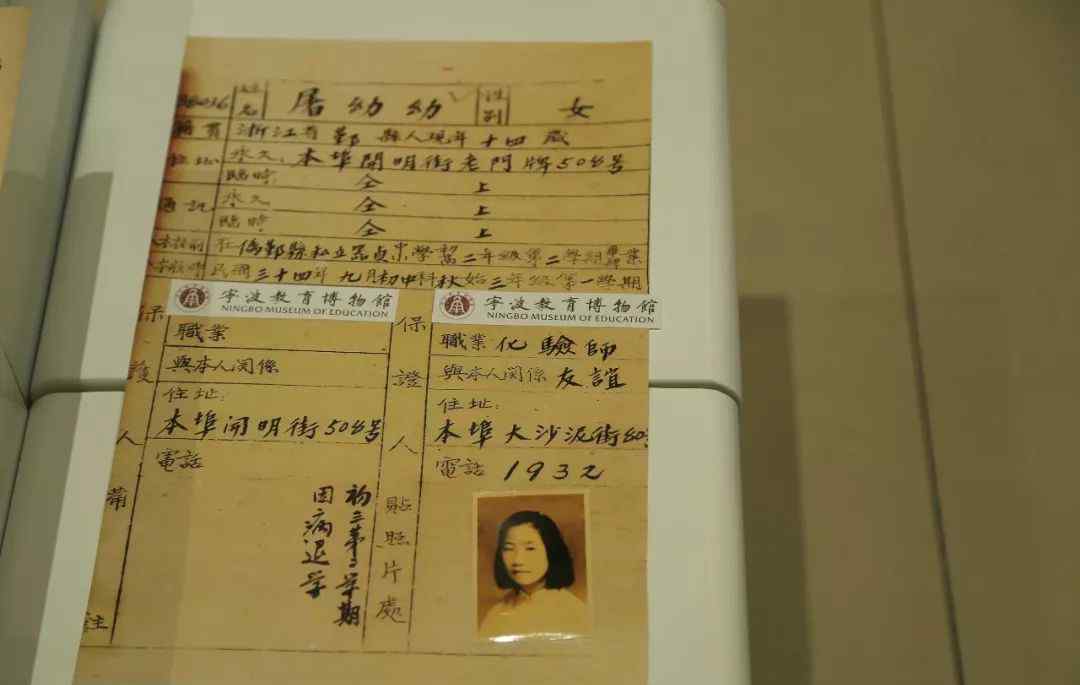 姓名 屠呦呦 性別 女
籍貫 浙江省鄞縣人現年十四歲
住址 永久: 本埠開明街老門牌50
臨時: 仝上
通訊 永久 仝上
臨時 仝上
在 鄞縣私立器貞中學 二年級第二學期
民國三十四年九月初中科秋始三年級第一學期
寧波教育博物館
NINGBO MUSEUM OF EDUCATION
寧波教育博物館
NINGBO MUSEUM OF EDUCATION
保護人
職業
與本人関係
住址:
本埠開明街50
電話
保證人
職業 化驗師
與本人関係 友誼
住址:
本埠大沙泥街
電話 1932
備註
初三第二學期
因病退学
貼照片處